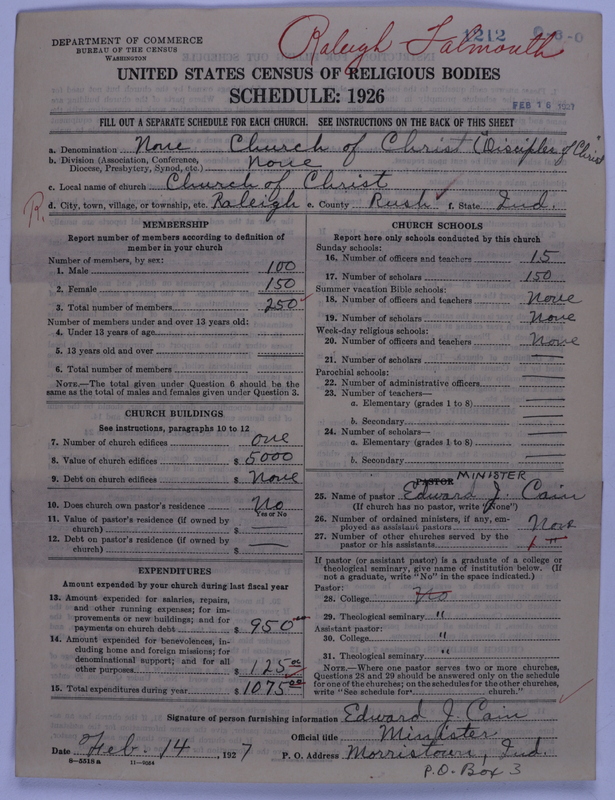 DEPARTMENT OF COMMERCE
BUREAU OF THE CENSUS
WASHINGTON
Raleigh-Falmouth
1212
UNITED STATES CENSUS OF RELIGIOUS BODIES
SCHEDULE: 1926
FEB 16 1927
FILL OUT A SEPARATE SCHEDULE FOR EACH CHURCH. SEE INSTRUCTIONS ON THE BACK OF THIS SHEET
a. Denomination None Church of Christ ("Disciples of Christ
b. Division (Association, Conference, Diocese, Presbytery, Synod, etc.) None
c. Local name of church Church of Christ
R. d. City, town, village, or township, etc. Raleigh e. County Rush f. State Ind.
MEMBERSHIP
Report number of members according to definition of member in your church
Number of members, by sex:
1. Male 100
2. Female 150
3. Total number of members 250
Number of members under and over 13 years old:
4. Under 13 years of age
5. 13 years old and over
6. Total number of members
NOTE.—The total given under Question 6 should be the same as the total of males and females given under Question 3.
CHURCH BUILDINGS
See instructions, paragraphs 10 to 12
7. Number of church edifices one
8. Value of church edifices $ 5000
9. Debt on church edifices $ None
10. Does church own pastor's residence No
Yes or No
11. Value of pastor's residence (if owned by church) $
12. Debt on pastor's residence (if owned by church) $
EXPENDITURES
Amount expended by your church during last fiscal year
13. Amount expended for salaries, repairs, and other running expenses; for improvements or new buildings; and for payments on church debt $ 950 00
14. Amount expended for benevolences, including home and foreign missions; for denominational support; and for all other purposes $ 125 00
15. Total expenditures during year $ 1075 00
CHURCH SCHOOLS
Report here only schools conducted by this church
Sunday schools:
16. Number of officers and teachers 15
17. Number of scholars 150
Summer vacation Bible schools:
18. Number of officers and teachers None
19. Number of scholars None
Week-day religious schools:
20. Number of officers and teachers None
21. Number of scholars
Parochial schools:
22. Number of administrative officers
23. Number of teachers—
a. Elementary (grades 1 to 8)
b. Secondary
24. Number of scholars—
a. Elementary (grades 1 to 8)
b. Secondary
PASTOR MINISTER
25. Name of pastor Edward J. Cain
(If church has no pastor, write "None")
26. Number of ordained ministers, if any, employed as assistant pastors None
27. Number of other churches served by the pastor or his assistants 1
If pastor (or assistant pastor) is a graduate of a college or theological seminary, give name of institution below. (If not a graduate, write "No" in the space indicated.)
Pastor:
28. College No
29. Theological seminary "
Assistant pastor:
30. College "
31. Theological seminary "
NOTE.—Where one pastor serves two or more churches, Questions 28 and 29 should be answered only on the schedule for one of the churches; on the schedules for the other churches, write "See schedule for church."
Signature of person furnishing information Edward J. Cain
Official title Minister
Date Feb. 14, 1927 P. O. Address Morristown, Ind.
8-5518 a 11-9064
P.O. Box 3